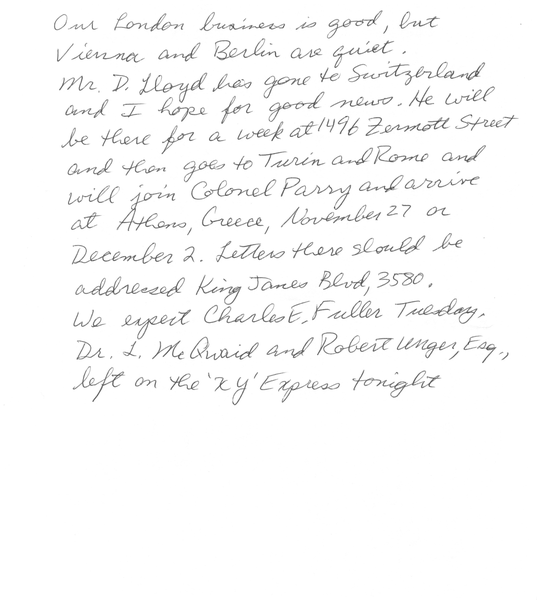 Our London business is good, but
Vienna and Berlin are quiet.
Mr. D. Lloyd has gone to Switzerland
and I hope for good news. He will
be there for a week at 1496 Zermott Street
and then goes to Turin and Rome and
will join Colonel Parry and arrive
at Athens, Greece, November 27 or
December 2. Letters there should be
addressed King James Blvd, 3580.
We expect Charles E. Fuller Tuesday.
Dr. L. McQuaid and Robert Unger, Esq.,
left on the 'XY' Express tonight